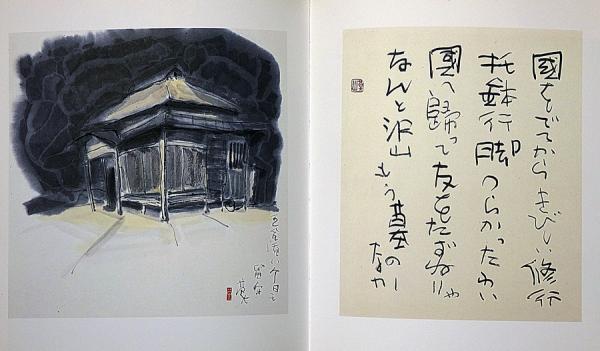 國をでてから きびしい修行
托鉢行脚のつらかったわい
國へ歸って友をたずねりゃ
なんと沢山 もう墓の
なか
今日も
留守